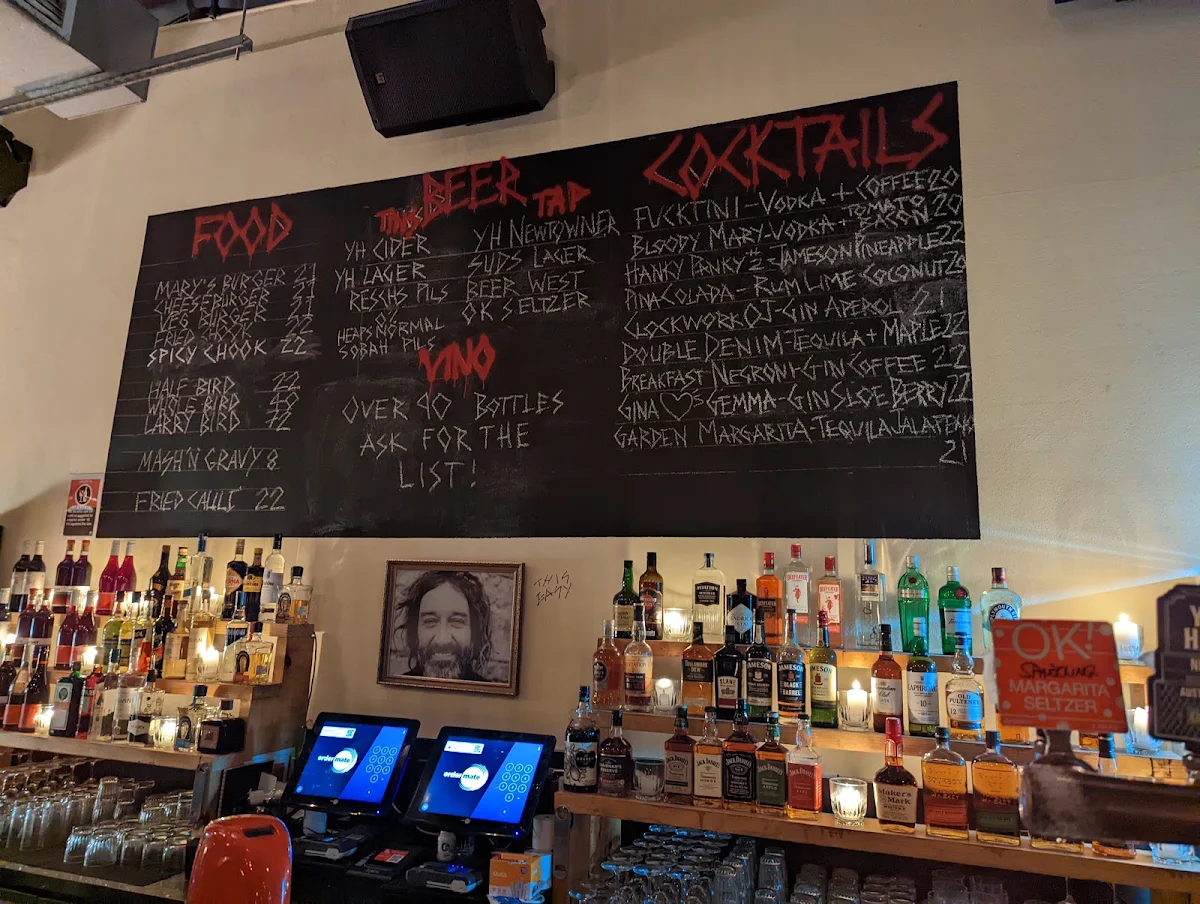 FOOD
MARY'S BURGER 21
CHEESEBURGER 21
VEG BURGER 21
FRIED CHOOK 22
SPICY CHOOK 22
HALF BIRD 22
WHOLE BIRD 40
LARRY BIRD 72
MASH'N GRAVY 8
FRIED CAULI 22
BEER
TAP
YH CIDER
YH LAGER
RESCHS PILS
HEAPS NORMAL
SOBAH PILS
YH NEWTOWNER
SUDS LAGER
BEER WEST
OK SELTZER
VINO
OVER 90 BOTTLES
ASK FOR THE
LIST!
COCKTAILS
FUCKTINI-VODKA + COFFEE 20
BLOODY MARY-VODKA + TOMATO BACON 20
HANKY PANKY JAMESON PINEAPPLE 22
PINA COLADA - RUM LIME COCONUT 20
CLOCKWORK OJ-GIN APEROL 21
DOUBLE DENIM-TEQUILA + MAPLE 22
BREAKFAST NEGRONI-GIN COFFEE 22
GINA ♡S GEMMA-GIN SLOE BERRY 22
GARDEN MARGARITA-TEQUILA JALAPEÑO
21
THIS
ordermate
ordermate
JAMESON
JAMESON
BLACK
BARREL
JAMESON
SLANE
LAPHROAIG
10
OLD
PULTENEY
12
BEEFEATER
JACK DANIEL'S
JACK DANIEL'S
JACK DANIEL'S
JACK DANIEL'S
Maker's
Mark
OK!
SPARKLING
MARGARITA
SELTZER